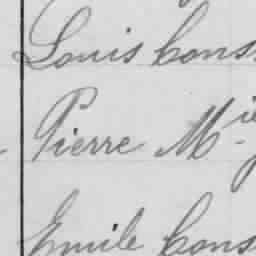 Louis Cons
Pierre Mie
Emile Cons